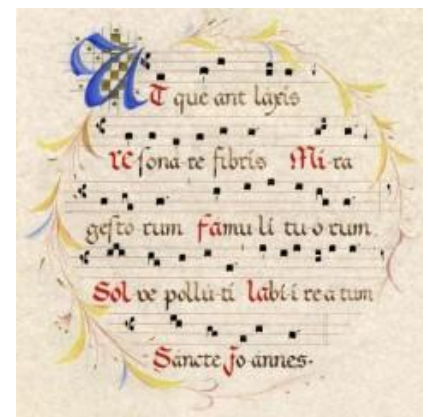 UT que ant laxis
re sona-re fibris Mi-ra
gesto-rum famu-li tu-o-rum
Sol-ve pollu-ti labi-i re a tum
Sancte Jo-annes-